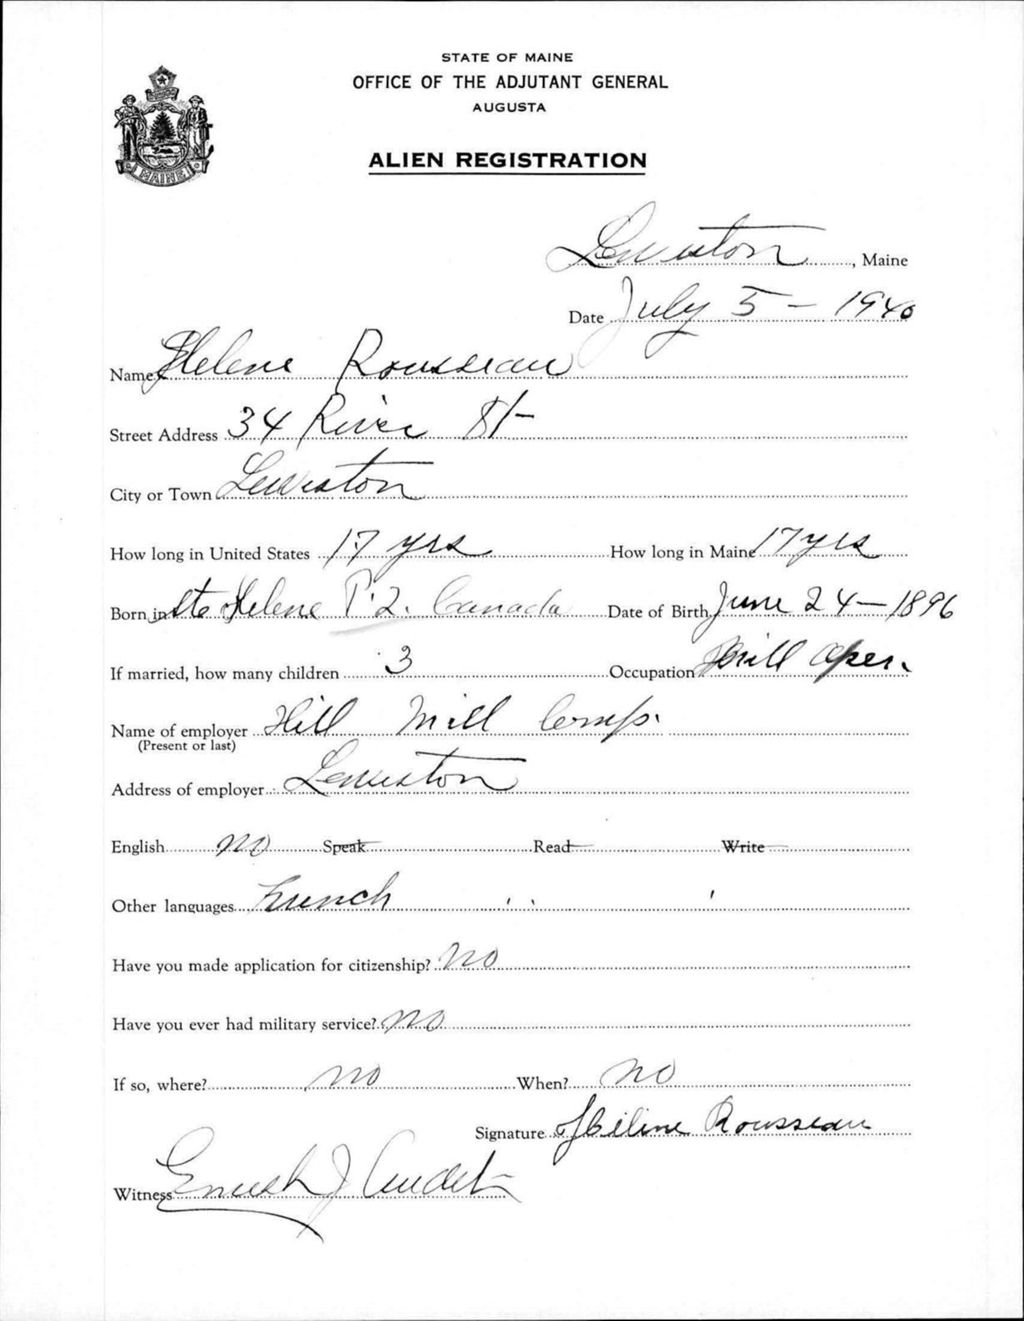 STATE OF MAINE
OFFICE OF THE ADJUTANT GENERAL
AUGUSTA
ALIEN REGISTRATION
MAINE
Lewiston, Maine
Date July 5 - 1940
Name Helene Rousseau
Street Address 34 River St
City or Town Lewiston
How long in United States 17 yrs How long in Maine 17 yrs
Born in Ste Helene P.Q. Canada Date of Birth June 24 - 1896
If married, how many children 3 Occupation Mill Oper.
Name of employer Hill Mill Comp.
(Present or last)
Address of employer Lewiston
English no Speak Read Write
Other languages French
Have you made application for citizenship? No
Have you ever had military service? no
If so, where? no When? no
Signature Héline Rousseau
Witness J Audet